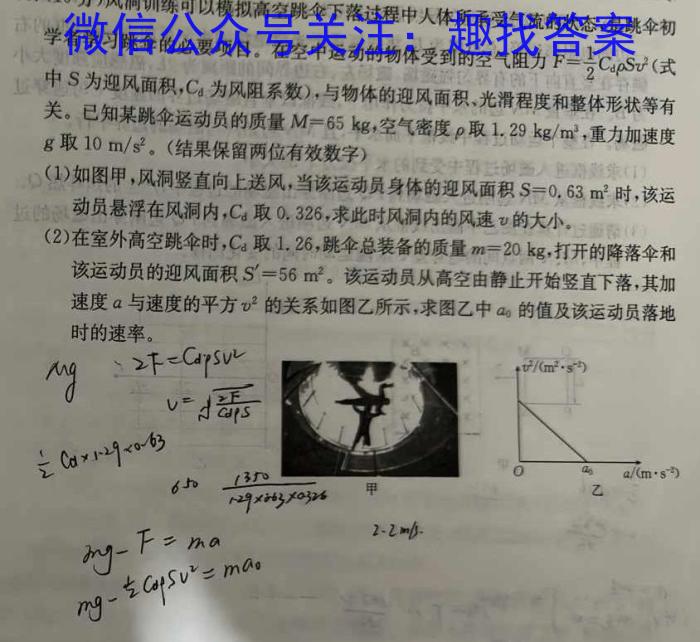 风洞训练可以模拟高空跳伞下落过程中人体所承受气流的状态
微信公众号关注：趣找答案
空中运动的物体受到的空气阻力 F=1/2 C_dρSv²(式
中 S 为迎风面积,C_d 为风阻系数),与物体的迎风面积、光滑程度和整体形状等有
关。已知某跳伞运动员的质量 M=65 kg,空气密度 ρ 取 1.29 kg/m³,重力加速度
g 取 10 m/s²。(结果保留两位有效数字)
(1)如图甲,风洞竖直向上送风,当该运动员身体的迎风面积 S=0.63 m² 时,该运
动员悬浮在风洞内,C_d 取 0.326,求此时风洞内的风速 v 的大小。
(2)在室外高空跳伞时,C_d 取 1.26,跳伞总装备的质量 m=20 kg,打开的降落伞和
该运动员的迎风面积 S′=56 m²。该运动员从高空由静止开始竖直下落,其加
速度 a 与速度的平方 v² 的关系如图乙所示,求图乙中 a₀ 的值及该运动员落地
时的速率。
mg ∴2F=CdρSv²
v=√(2F/CdρS)
1/2 Cd×1.29×0.63
650 1350/1.29×0.63×0.326
v²/(m²·s⁻²)
O a₀ a/(m·s⁻²)
甲 乙
2.2m/s.
mg-F=ma
mg-1/2CdρSv²=ma₀